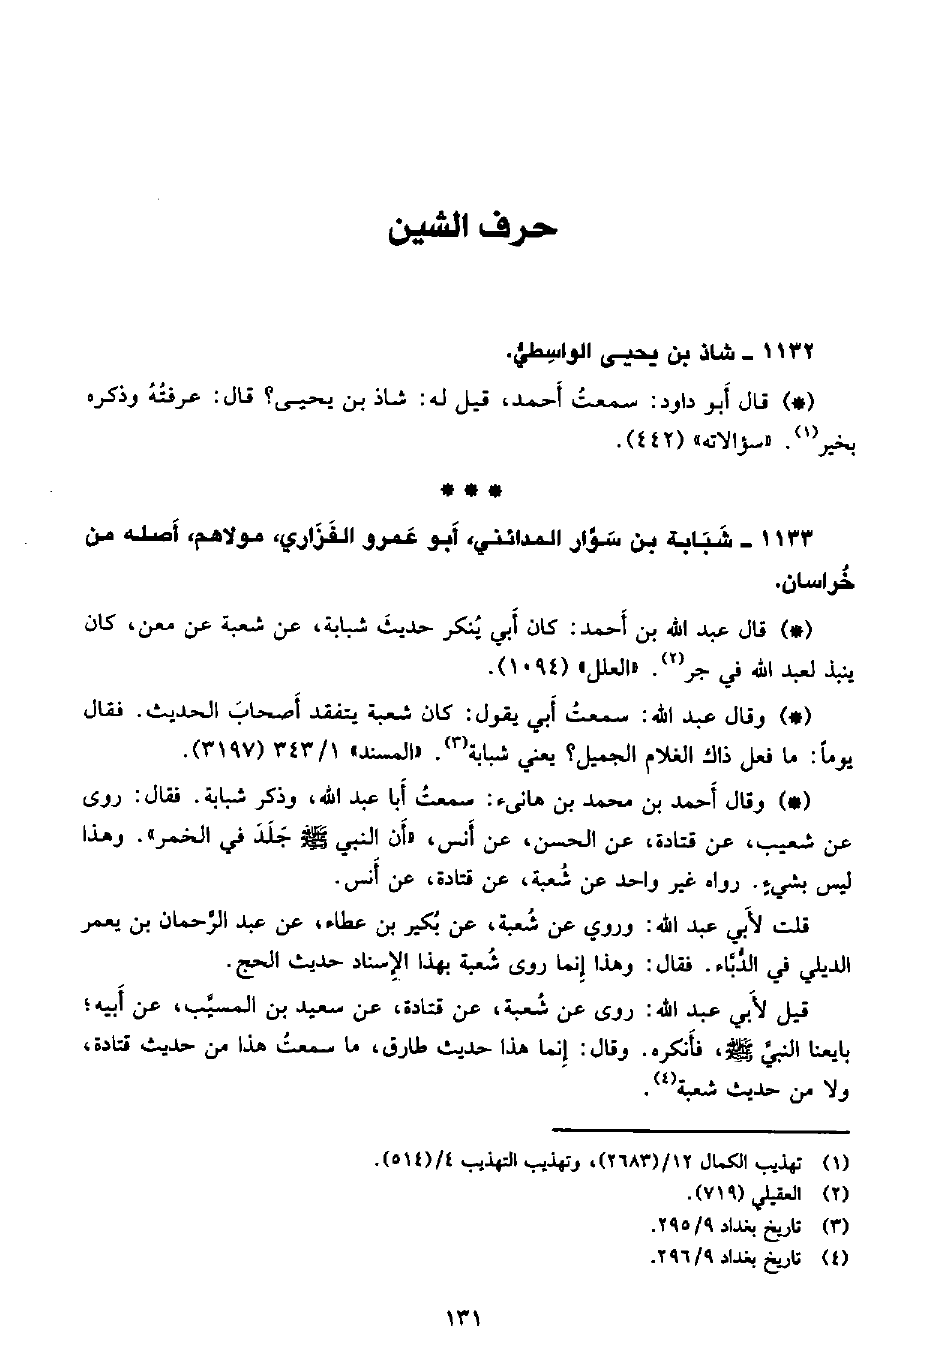 حرف الشين
١١٣٢ ـ شاذ بن يحيى الواسِطيُّ.
(*) قال أَبو داود: سمعتُ أَحمد، قيل له: شاذ بن يحيى؟ قال: عرفتُهُ وذكره
بخير(١). «سؤالاته» (٤٤٢).
* * *
١١٣٣ ـ شَبَابة بن سَوَّار المدائني، أَبو عَمرو الفَزَاري، مولاهم، أَصله من
خُراسان.
(*) قال عبد الله بن أَحمد: كان أَبي يُنكر حديثَ شبابة، عن شعبة عن معن، كان
ينبذ لعبد الله في جر(٢). «العلل» (١٠٩٤).
(*) وقال عبد الله: سمعتُ أَبي يقول: كان شعبة يتفقد أَصحابَ الحديث. فقال
يوماً: ما فعل ذاك الغلام الجميل؟ يعني شبابة(٣). «المسند» ٣٤٣/١ (٣١٩٧).
(*) وقال أَحمد بن محمد بن هانىء: سمعتُ أَبا عبد الله، وذكر شبابة. فقال: روى
عن شعيب، عن قتادة، عن الحسن، عن أَنس، «أَن النبي ﷺ جَلَدَ في الخمر». وهذا
ليس بشيءٍ. رواه غير واحد عن شُعبة، عن قتادة، عن أَنس.
قلت لأَبي عبد الله: وروي عن شُعبة، عن بُكير بن عطاء، عن عبد الرَّحمان بن يعمر
الديلي في الدُّبَّاء. فقال: وهذا إِنما روى شُعبة بهذا الإِسناد حديث الحج.
قيل لأَبي عبد الله: روى عن شُعبة، عن قتادة، عن سعيد بن المسيَّب، عن أَبيه؛
بايعنا النبيَّ ﷺ، فأَنكره. وقال: إِنما هذا حديث طارق، ما سمعتُ هذا من حديث قتادة،
ولا من حديث شعبة(٤).
(١) تهذيب الكمال ١٢/(٢٦٨٣)، وتهذيب التهذيب ٤/(٥١٤).
(٢) العقيلي (٧١٩).
(٣) تاريخ بغداد ٢٩٥/٩.
(٤) تاريخ بغداد ٢٩٦/٩.
١٣١